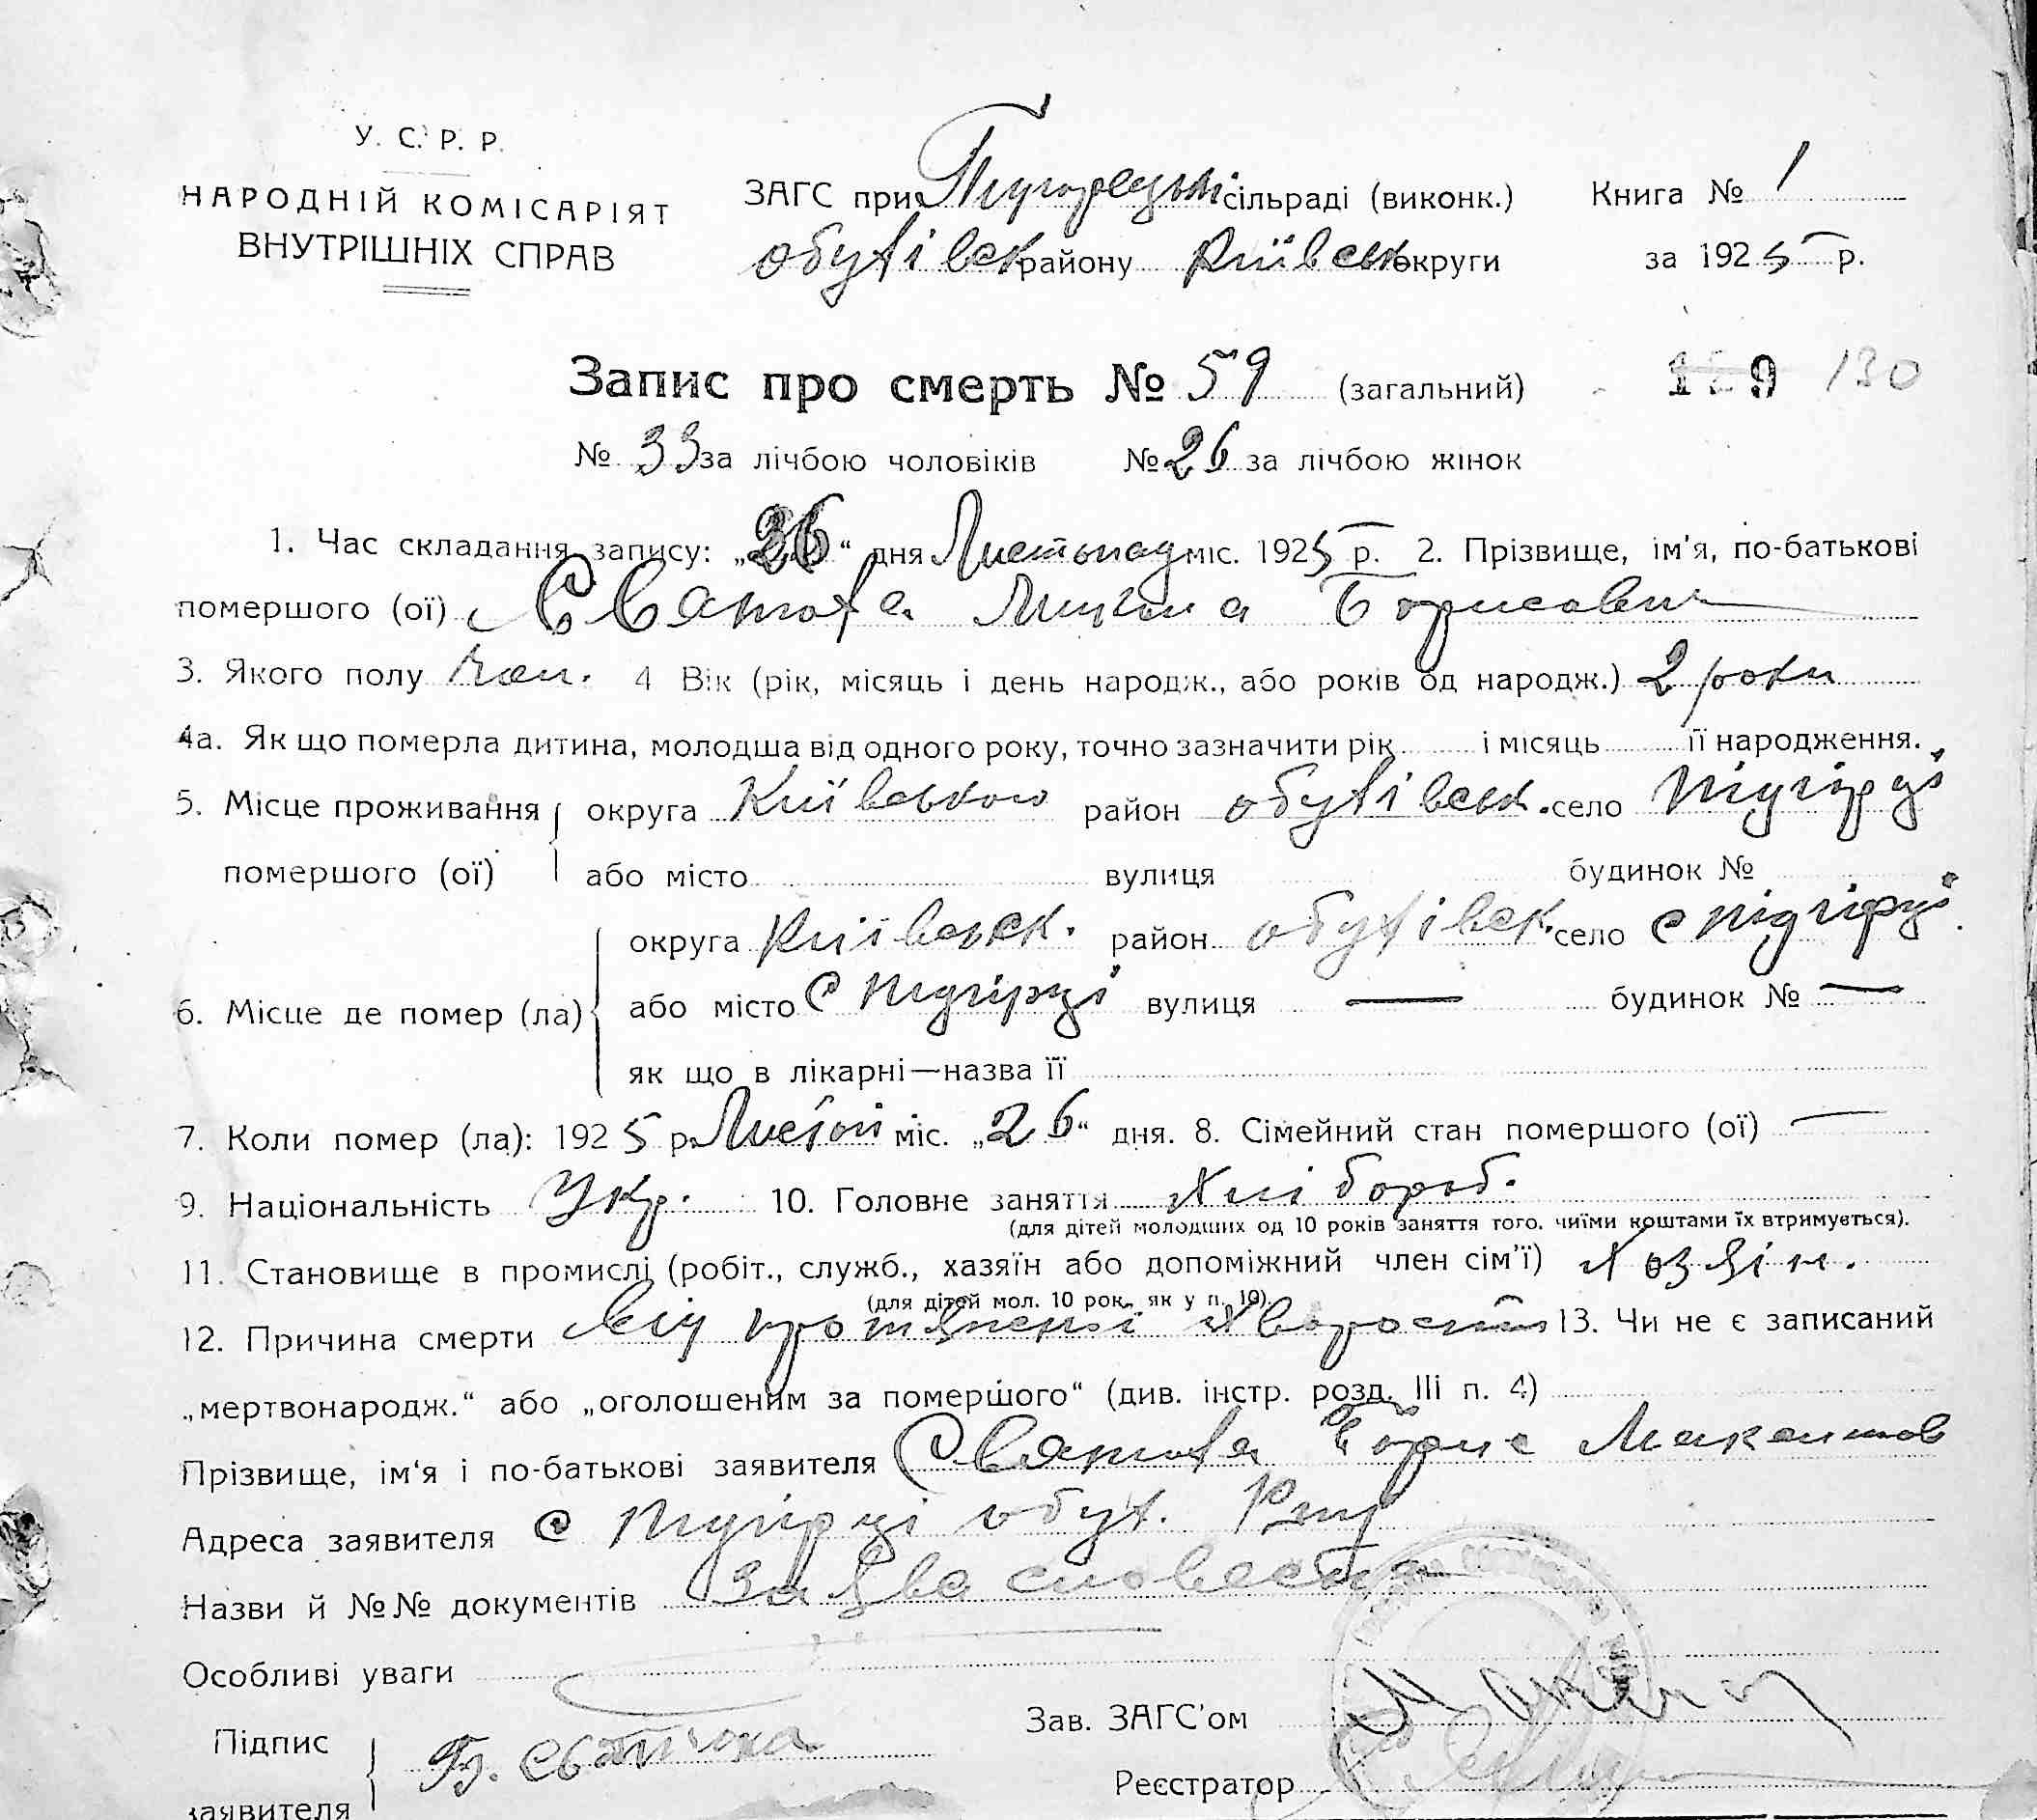 У. С. Р. Р.
НАРОДНІЙ КОМІСАРІЯТ
ВНУТРІШНІХ СПРАВ
ЗАГС при Підгорецькі сільраді (виконк.)
Обухівськ району Київськ округи
Книга № 1
за 1925 р.
Запис про смерть № 59 (загальний) 129 130
№ 33 за лічбою чоловіків № 26 за лічбою жінок
1. Час складання запису: „26“ дня Листопад міс. 1925 р. 2. Прізвище, ім'я, по-батькові
помершого (ої) Святоха Микола Борисович
3. Якого полу чол. 4 Вік (рік, місяць і день народж., або років од народж.) 2 роки
4а. Як що померла дитина, молодша від одного року, точно зазначити рік і місяць її народження.
5. Місце проживання округа Київською район обухівськ. село Підгірці
помершого (ої) або місто вулиця будинок №
округа Київськ. район обухівск. село с Підгірці
6. Місце де помер (ла) або місто с Підгірці вулиця — будинок № —
як що в лікарні—назва її
7. Коли помер (ла): 1925 р. Листоп міс. „26“ дня. 8. Сімейний стан помершого (ої) —
9. Національність Укр. 10. Головне заняття Хлібороб.
(для дітей молодших од 10 років заняття того, чиїми коштами їх втримується).
11. Становище в промислі (робіт., служб., хазяїн або допоміжний член сім'ї) Хозяїн.
(для дітей мол. 10 рок. як у п. 10).
12. Причина смерти від 13. Чи не є записаний
„мертвонародж.“ або „оголошеним за помершого“ (див. інстр. розд. III п. 4)
Прізвище, ім‘я і по-батькові заявителя Святоха Борис Максимов
Адреса заявителя с Підгірці обух. Р-ну
Назви й №№ документів Заява словесна
Особливі уваги
Підпис
заявителя
Б.
Зав. ЗАГС'ом
Реєстратор